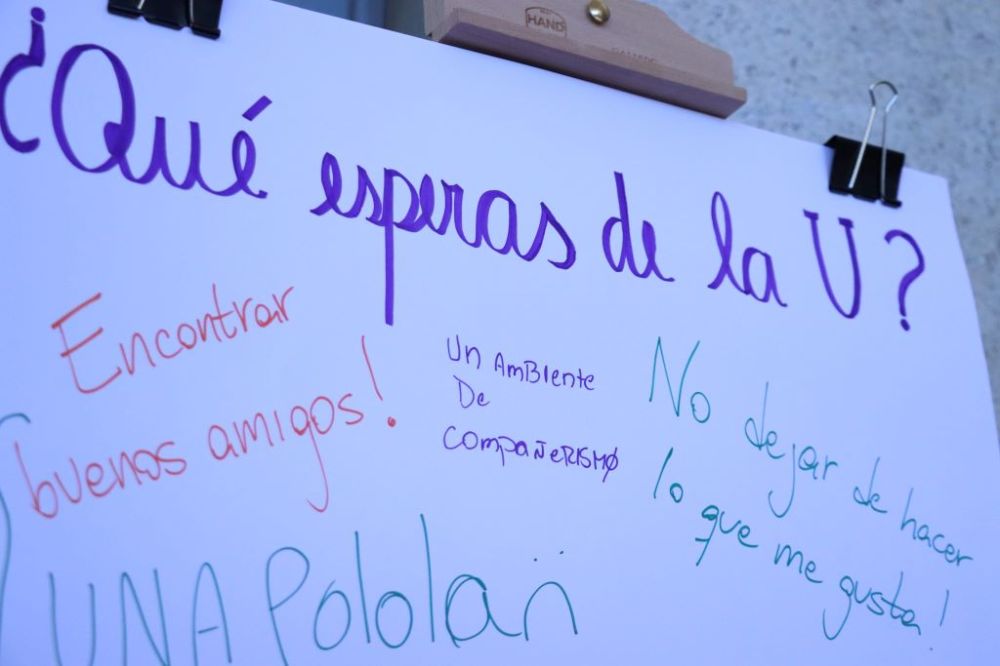 HAND
¿Qué esperas de la U?
Encontrar
buenos amigos!
Un AmBIente
De
COmpAÑeRISMO
No dejar de hacer
lo que me gusta!
UNA Pololañ